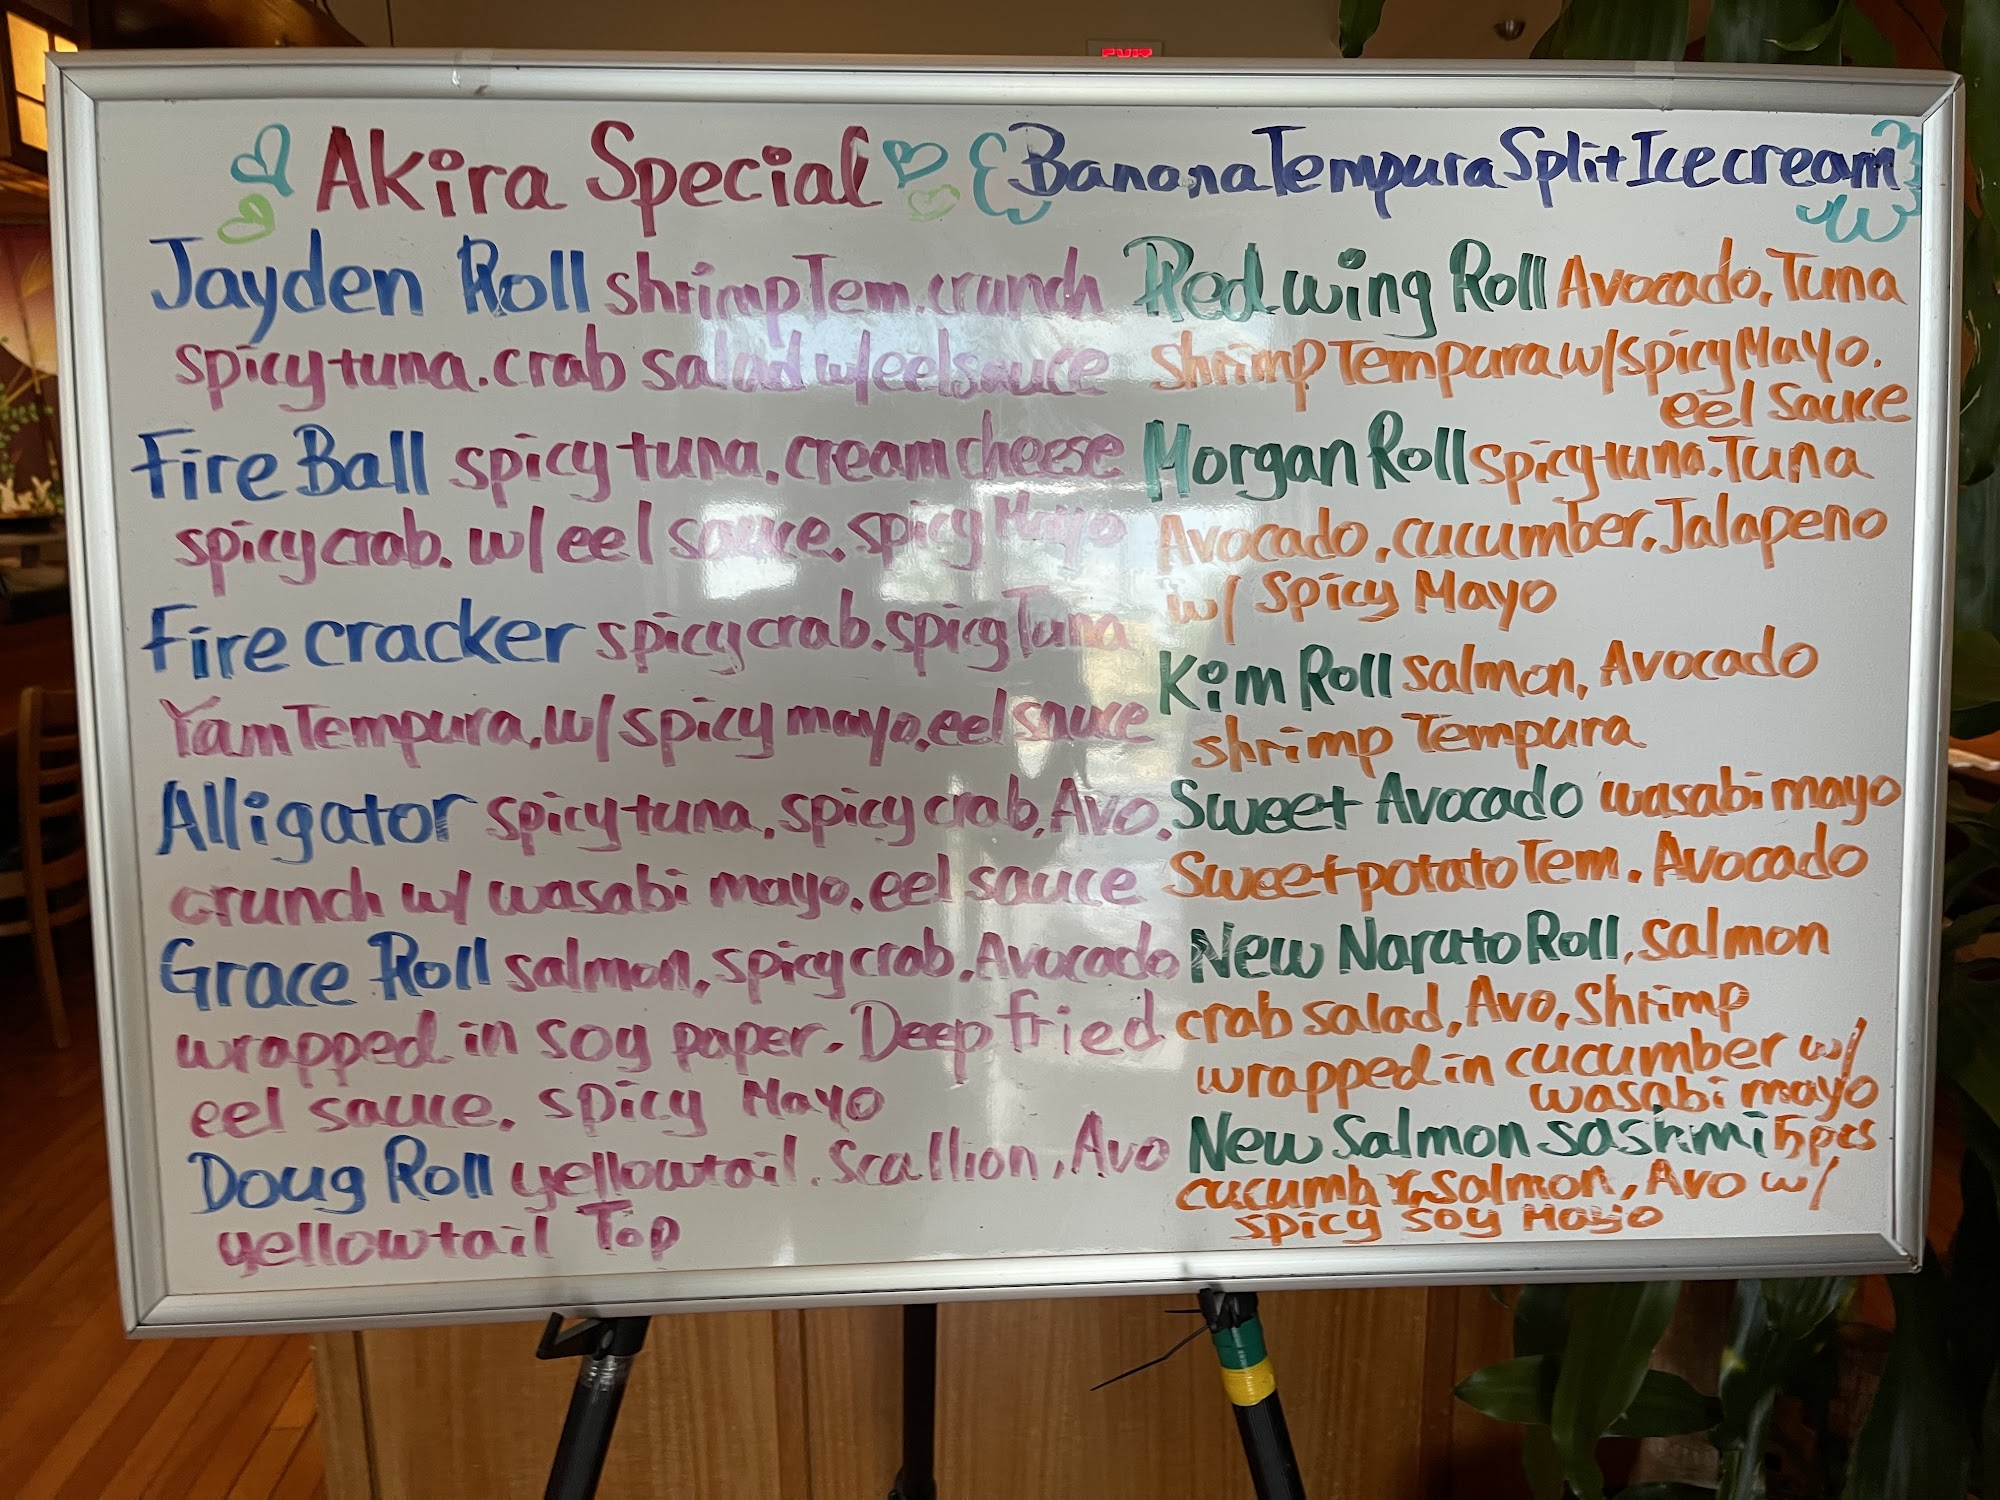 EXIT
Akira Special
Jayden Roll shrimp Tem. crunch
spicy tuna. crab salad w/ eel sauce
Fire Ball spicy tuna. cream cheese
spicy crab. w/ eel sauce. spicy Mayo
Fire cracker spicy crab. spicy Tuna
Yam Tempura. w/ spicy mayo. eel sauce
Alligator spicy tuna. spicy crab. Avo.
crunch w/ wasabi mayo. eel sauce
Grace Roll salmon, spicy crab. Avocado
wrapped in soy paper. Deep fried
eel sauce. spicy Mayo
Doug Roll yellowtail. Scallion, Avo
yellowtail Top
Banana Tempura Split Ice cream
Red wing Roll Avocado. Tuna
shrimp Tempura w/ spicy Mayo.
eel sauce
Morgan Roll spicy tuna. Tuna
Avocado. cucumber. Jalapeno
w/ Spicy Mayo
Kim Roll salmon, Avocado
shrimp Tempura
Sweet Avocado wasabi mayo
Sweet potato Tem. Avocado
New Naruto Roll. salmon
crab salad, Avo, Shrimp
wrapped in cucumber w/
wasabi mayo
New Salmon sashimi 5pcs
cucumber, salmon, Avo w/
spicy soy Mayo